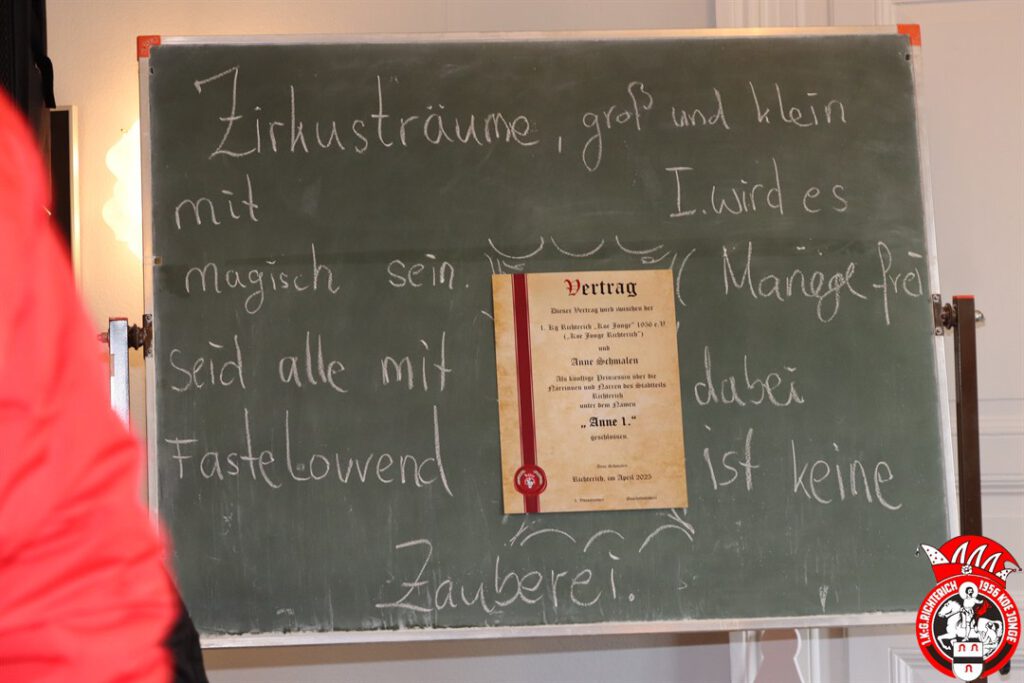 Zirkusträume, groß und klein
mit I. wird es
magisch sein. Manege frei
seid alle mit dabei
Fastelovvend ist keine
Zauberei.
Vertrag
Dieser Vertrag wird zwischen der
1. Kg Richterich „Koe Jonge" 1956 e.V.
(„Koe Jonge Richterich")
und
Anne Schmalen
Als künftige Prinzessin über die
Närrinnen und Narren des Stadtteils
Richterich
unter dem Namen
„Anne 1."
geschlossen.
Anne Schmalen
Richterich, im April 2025
1. Vorsitzender
1.K.G.RICHTERICH 1956 KOE JONGE